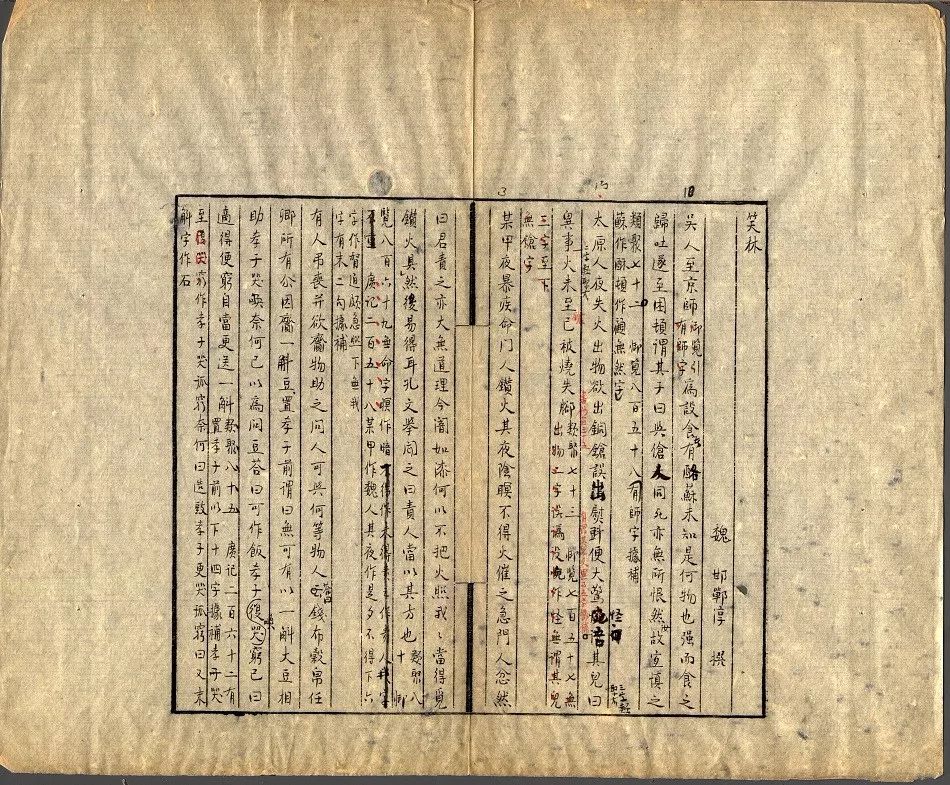 笑林
魏 邯鄲淳 撰
吳人至京師御覽引有師字為設食者有酪蘇未知是何物也强而食之
歸吐遂至困頓謂其子曰與傖人同死亦無所恨然故宜慎之
類聚七十二 御覽八百五十八有師字據補
蘇作酥頓作顧無然字
太原人夜失火出物欲出銅鎗誤出熨斗便大驚怪其兒曰
異事火未至已被燒失腳類聚七十三 御覽七百五十七無
三字至下 出物二字誤為設 怪作恠無謂其兒
無鎗字
某甲夜暴疾命門人鑽火其夜陰暝不得火催之急門人忿然
曰君責之亦大無道理今闇如漆何以不把火照我々當得覓
鑽火具然後易得耳孔文舉聞之曰責人當以其方也 類聚八十 御
覽八百六十九無命字暝作暗
廣記二百五十八某甲作魏人其夜作是夕不得下六
字作督迫頗急照下無我
字有末二句據補
有人弔喪并欲齎物助之問人可與何等物人答曰錢布穀帛任
卿所有公因齎一斛豆置孝子前謂曰無可有以一斛大豆相
助孝子哭喚奈何己以為問豆答曰可作飯孝子復哭窮己曰
適得便窮自當更送一斛 類聚八十五 廣記二百六十二有
置孝子前以下十四字據補孝子哭
至復哭窮作孝子哭孤窮奈何曰造豉孝子更哭孤窮曰又未
斛字作石